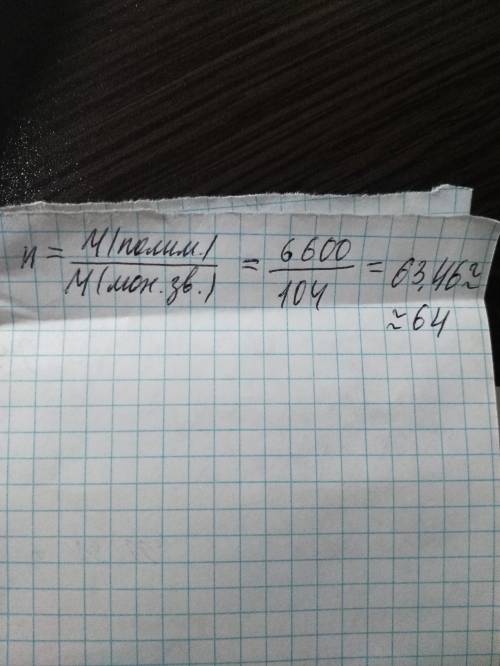 n = M(полим.) / M(мон.зв.) = 6600 / 104 = 63,46 ≈
≈ 64